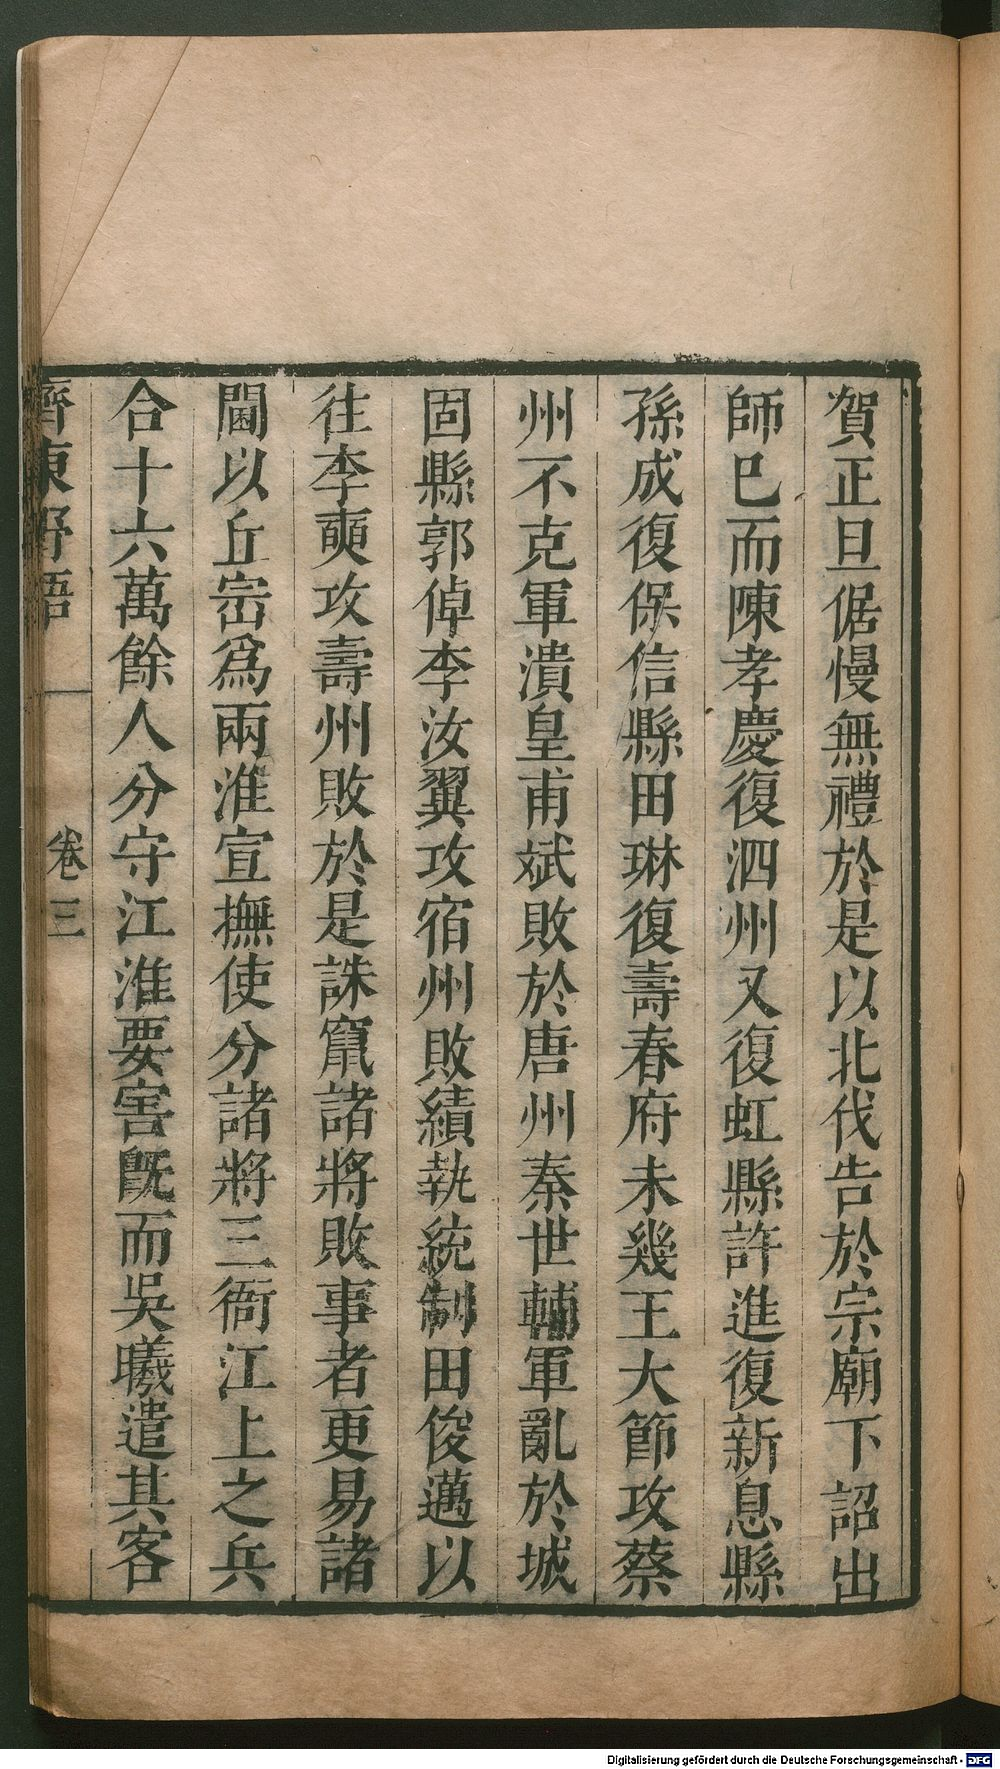 賀正旦倨慢無禮於是以北伐告於宗廟下詔出
師巳而陳孝慶復泗州又復虹縣許進復新息縣
孫成復保信縣田琳復壽春府未幾王大節攻蔡
州不克軍潰皇甫斌敗於唐州秦世輔軍亂於城
固縣郭倬李汝翼攻宿州敗績執統制田俊邁以
往李奭攻壽州敗於是誅竄諸將敗事者更易諸
閫以丘崈爲兩淮宣撫使分諸將三衙江上之兵
合十六萬餘人分守江淮要害旣而吳曦遣其客
齊東野語 卷三
Digitalisierung gefördert durch die Deutsche Forschungsgemeinschaft - DFG